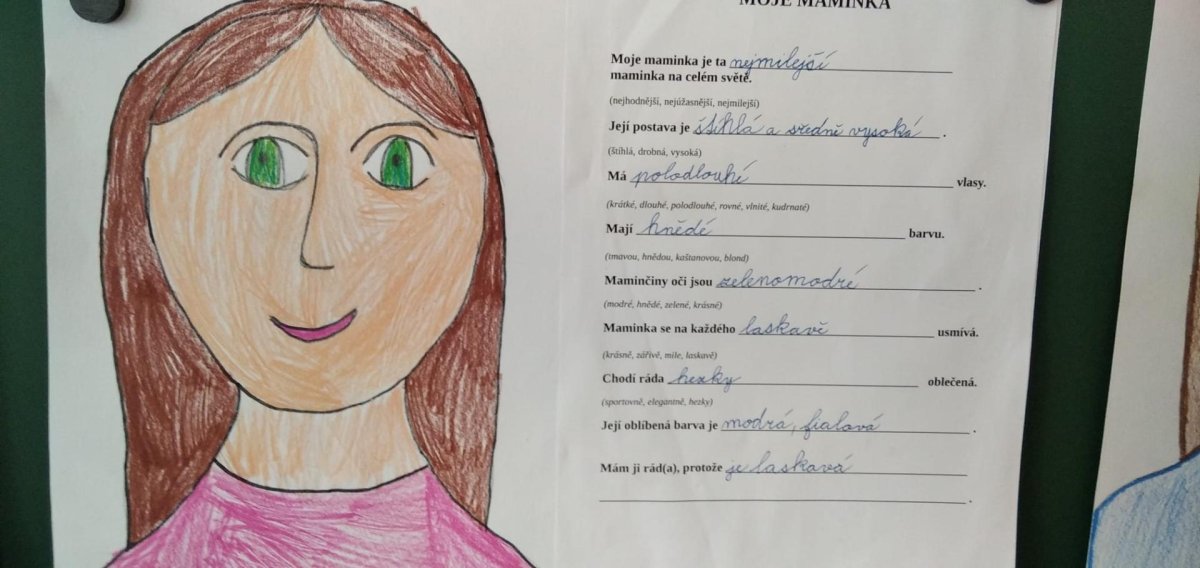 MOJE MAMINKA
Moje maminka je ta nejmilejší
maminka na celém světě.
(nejhodnější, nejúžasnější, nejmilejší)
Její postava je štíhlá a středně vysoká .
(štíhlá, drobná, vysoká)
Má polodlouhé vlasy.
(krátké, dlouhé, polodlouhé, rovné, vlnité, kudrnaté)
Mají hnědé barvu.
(tmavou, hnědou, kaštanovou, blond)
Maminčiny oči jsou zelenomodré .
(modré, hnědé, zelené, krásné)
Maminka se na každého laskavě usmívá.
(krásně, zářivě, mile, laskavě)
Chodí ráda hezky oblečená.
(sportovně, elegantně, hezky)
Její oblíbená barva je modrá, fialová .
Mám ji rád(a), protože je laskavá
.